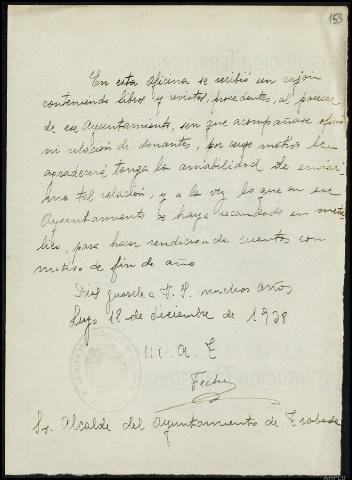 153
En esta Oficina se recibió un cajón
conteniendo libros y revistas, procedentes, al parecer
de ese Ayuntamiento, sin que acompañase oficio
ni relación de donantes, por cuyo motivo le
agradeceré, tenga la amabilidad de enviar
me tal relación, y a la vez lo que en ese
Ayuntamiento se haya recaudado en metá-
lico, para hacer rendicion de cuentas con
motivo de fin de año
Dios guarde a V. S. muchos años
Lugo 12 de diciembre de 1938
III. A. T
Sr. Alcalde del Ayuntamiento de Trabada
AHPLU